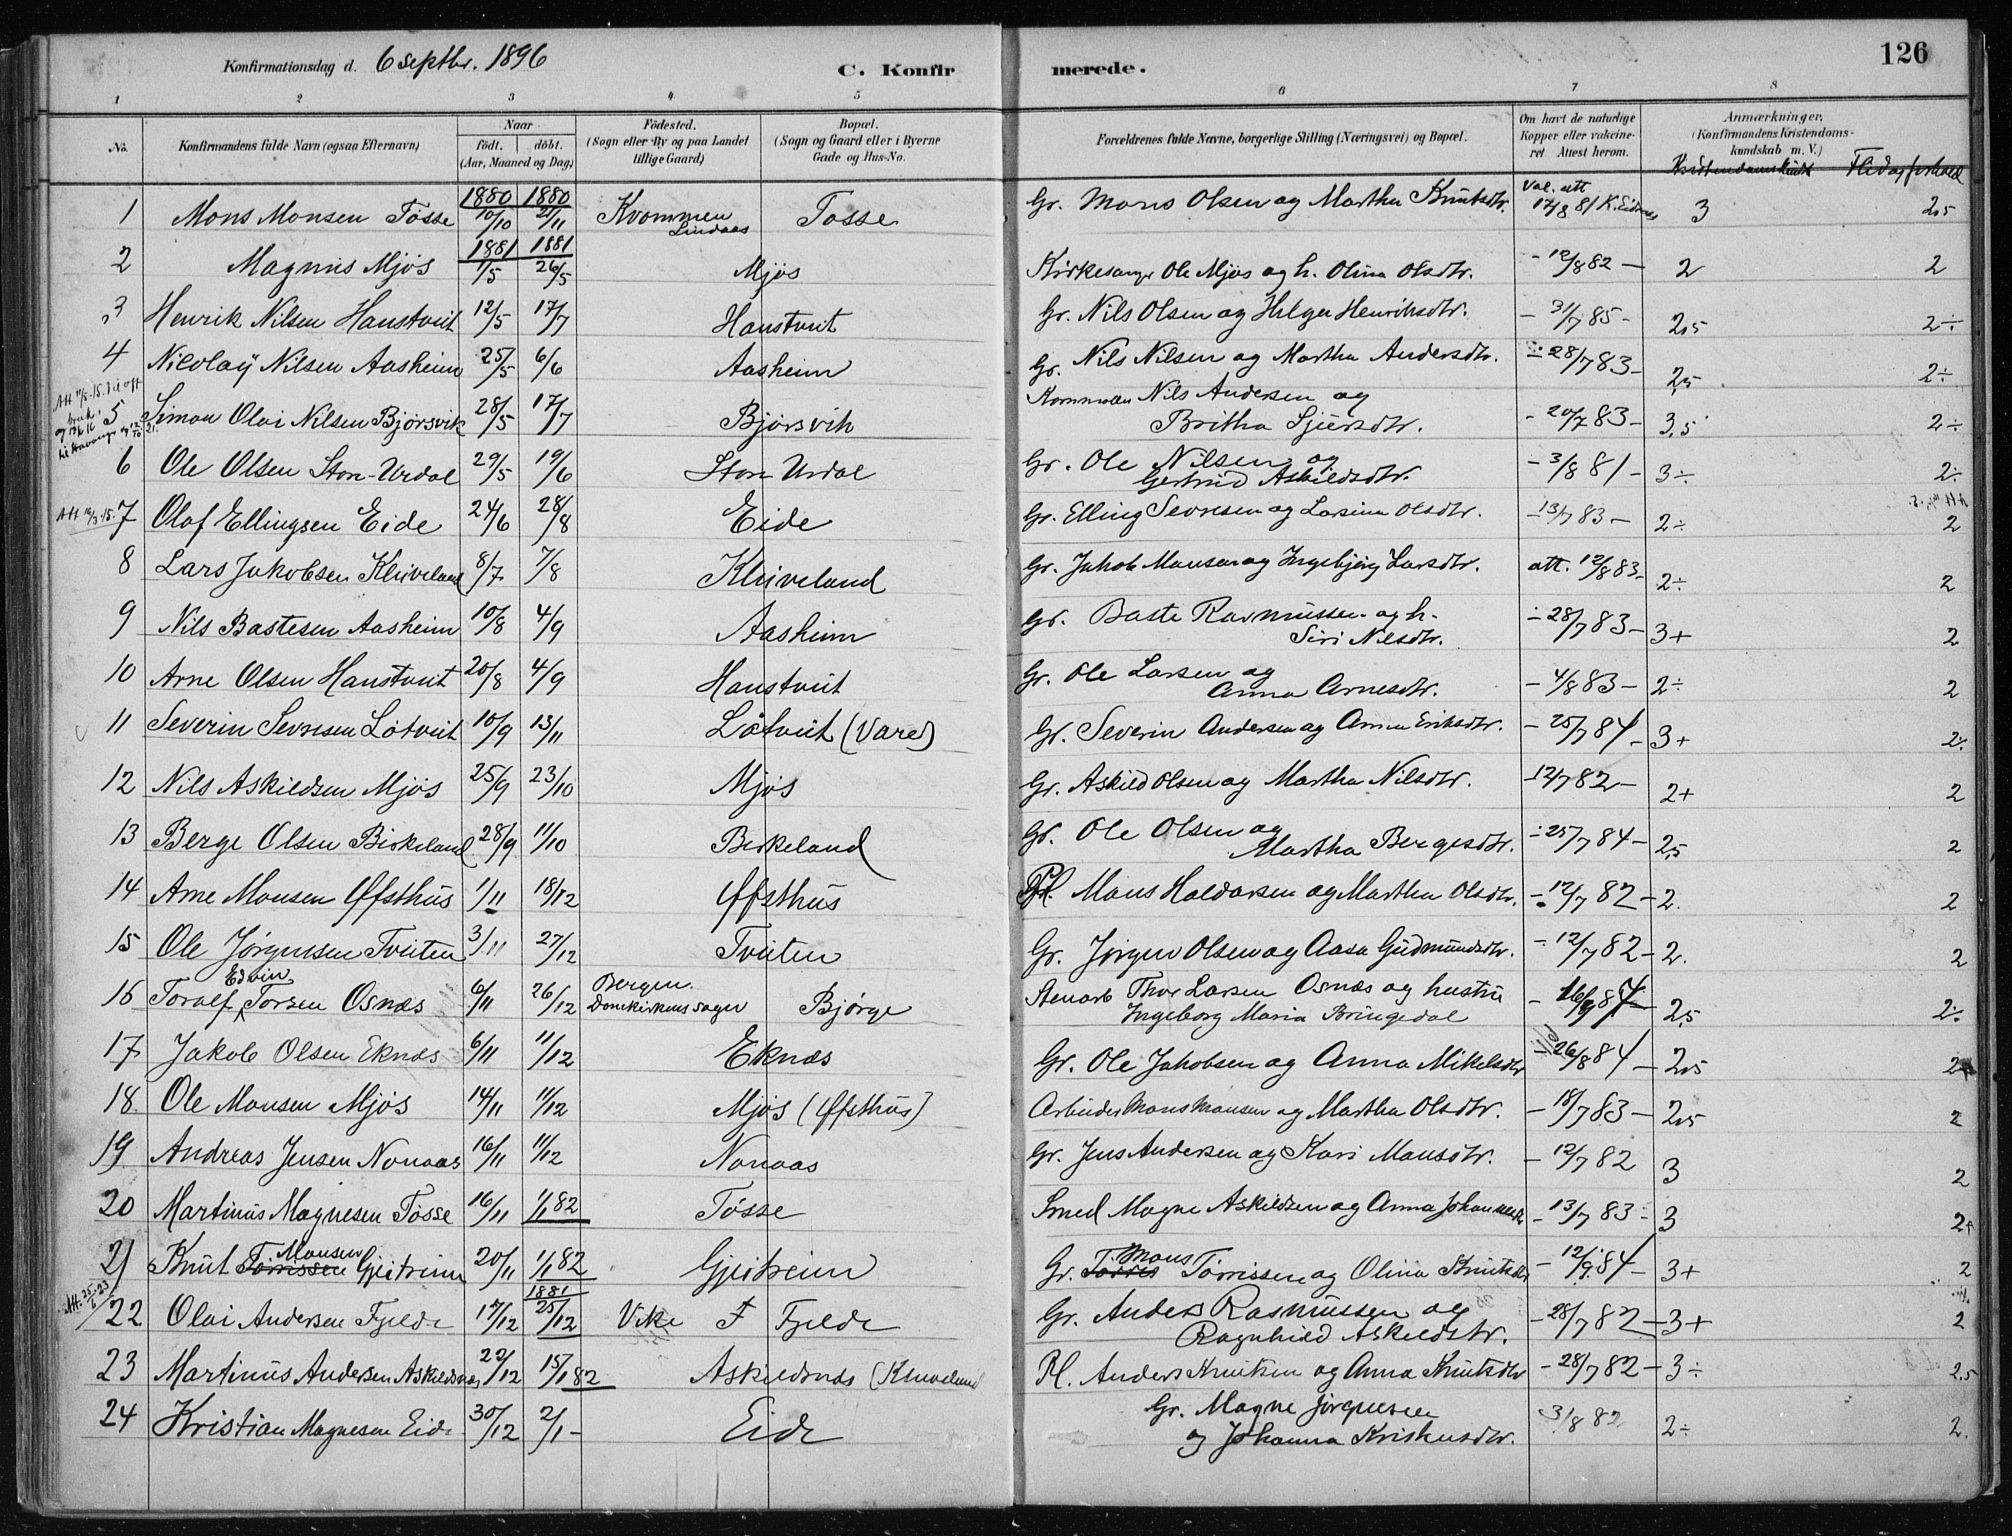 Konfirmationsdag d. 6 septbr. 1896
C. Konfirmerede.
126
1 2 3 4 5 6 7 8
No.
Konfirmandens fulde Navn (ogsaa Efternavn)
Naar
födt. döbt.
(Aar, Maaned og Dag)
Födested.
(Sogn eller By og paa Landet
tillige Gaard)
Bopæl.
(Sogn og Gaard eller i Byerne
Gade og Hus-No.
Forældrenes fulde Navne, borgerlige Stilling (Næringsvei) og Bopæl.
Om havt de naturlige
Kopper eller vakcine-
ret Attest herom.
Anmærkninger.
(Konfirmandens Kristendoms-
kundskab m. V.)
Kristendomskundsk Flid og forhold
1 Mons Monsen Tösse 1880 10/10 1880 21/11 Kvommen Lindaas Tosse Gr. Mons Olsen og Martha Knutsdtr. Vac. att 17/8 81 3 2,5
2 Magnus Mjös 1881 1/5 1881 26/5 Mjös Kirkesanger Ole Mjös og h. Olina Olsdtr. - 12/8 82 - 2 2
3 Henrik Nilsen Hanstveit 12/5 17/7 Hanstveit Gr. Nils Olsen og Helga Henriksdtr. - 31/7 85 - 2,5 2÷
4 Nicolaÿ Nilsen Aasheim 25/5 6/6 Aasheim Gr. Nils Nilsen og Martha Andersdtr. - 28/7 83 - 2,5 2÷
5 Simon Olai Nilsen Bjørsvik 28/5 17/7 Bjørsvik Nils Andersen og
Britha Sjursdtr. - 20/7 83 - 3,5 2÷
6 Ole Olsen Stor-Urdal 29/5 19/6 Stor Urdal Gr. Ole Nilsen og
Gertrud Askildsdtr. - 3/8 81 - 3÷ 2÷
7 Olaf Ellingsen Eide 24/6 28/8 Eide Gr. Elling Sevresen og Larsina Olsdtr. - 13/7 83 - 2÷ 2
8 Lars Jakobsen Kluveland 8/7 7/8 Kluveland Gr. Jakob Monsen og Ingebjørg Larsdtr. att. 12/8 83 - 2÷ 2
9 Nils Bastesen Aasheim 10/8 4/9 Aasheim Gr. Baste Rasmussen og h.
Siri Nilsdtr. - 28/7 83 - 3+ 2
10 Arne Olsen Hanstveit 20/8 4/9 Hanstveit Gr. Ole Larsen og
Anna Arnesdtr. - 4/8 83 - 2÷ 2
11 Severin Sevresen Lötveit 10/9 13/11 Lötveit (Vare) Gr. Severin Andersen og Anna Eriksdtr. - 25/7 84 - 3+ 2÷
12 Nils Askildsen Mjös 25/9 23/10 Mjös Gr. Askild Olsen og Martha Nilsdtr. - 12/7 82 - 2+ 2
13 Berge Olsen Birkeland 28/9 11/10 Birkeland Gr. Ole Olsen og
Martha Bergesdtr. - 25/7 84 - 2,5 2
14 Arne Monsen Øfsthus 1/11 18/12 Øfsthus Pl. Mons Haldorsen og Martha Olsdtr. - 12/7 82 - 2. 2
15 Ole Jørgensen Tveiten 3/11 27/12 Tveiten Gr. Jørgen Olsen og Aasa Gudmundsdtr. - 12/7 82 - 2. 2
16 Toralf Edvin Torsen Osnæs 6/11 26/12 Bergen. Domkirkens sogn Bjørge Stenarb Thor Larsen Osnæs og hustru
Ingeborg Maria Bringedal - 16/9 84 2,5 2÷
17 Jakob Olsen Eknæs 6/11 11/12 Eknæs Gr. Ole Jakobsen og Anna Mikelsdtr - 26/8 84 - 2,5
18. Ole Monsen Mjös 14/11 11/12 Mjös (Øfsthus) Arbeider Mons Monsen og Martha Olsdtr. - 18/7 83 - 2,5 2
19 Andreas Jensen Nonaas 16/11 11/12 Nonaas Gr. Jens Andersen og Kari Monsdtr. - 12/7 82 3 2
20 Martinus Magnesen Tösse 16/11 1/1 82 Tösse Smed Magne Askildsen og Anna Johannesdtr - 13/7 83 - 3 2+
21 Knut Torrissen Monsen Gjeitreim 20/11 1/1 82 Gjeitreim Gr. Torres Mons Torrissen og Olina Knutsdtr - 12/9 84 - 3+ 2
22 Olai Andersen Fjelde 17/12 1881 25/12 Vike Fjelde Gr. Anders Rasmussen og
Ragnhild Askildsdtr. - 28/7 82 - 3+ 2
23 Martinus Andersen Askildsnæs 22/12 15/1 82 Askildsnæs (Kluveland Pl. Anders Knutsen og Anna Knutsdtr - 28/7 82 - 3÷ 2,5
24 Kristian Magnesen Eide 30/12 2/1 - Eide Gr. Magne Jörgensen
og Johanna Kristensdtr. 31/8 82 2÷ 2.